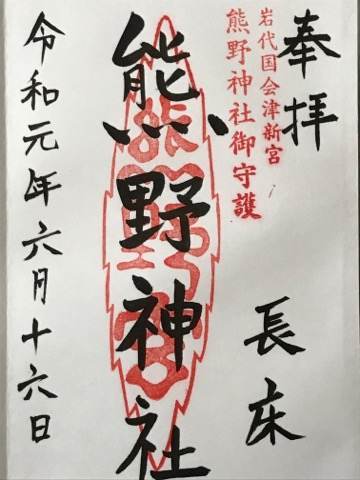 奉拝
長床
岩代国会津新宮
熊野神社御守護
熊野神社
令和元年六月十六日